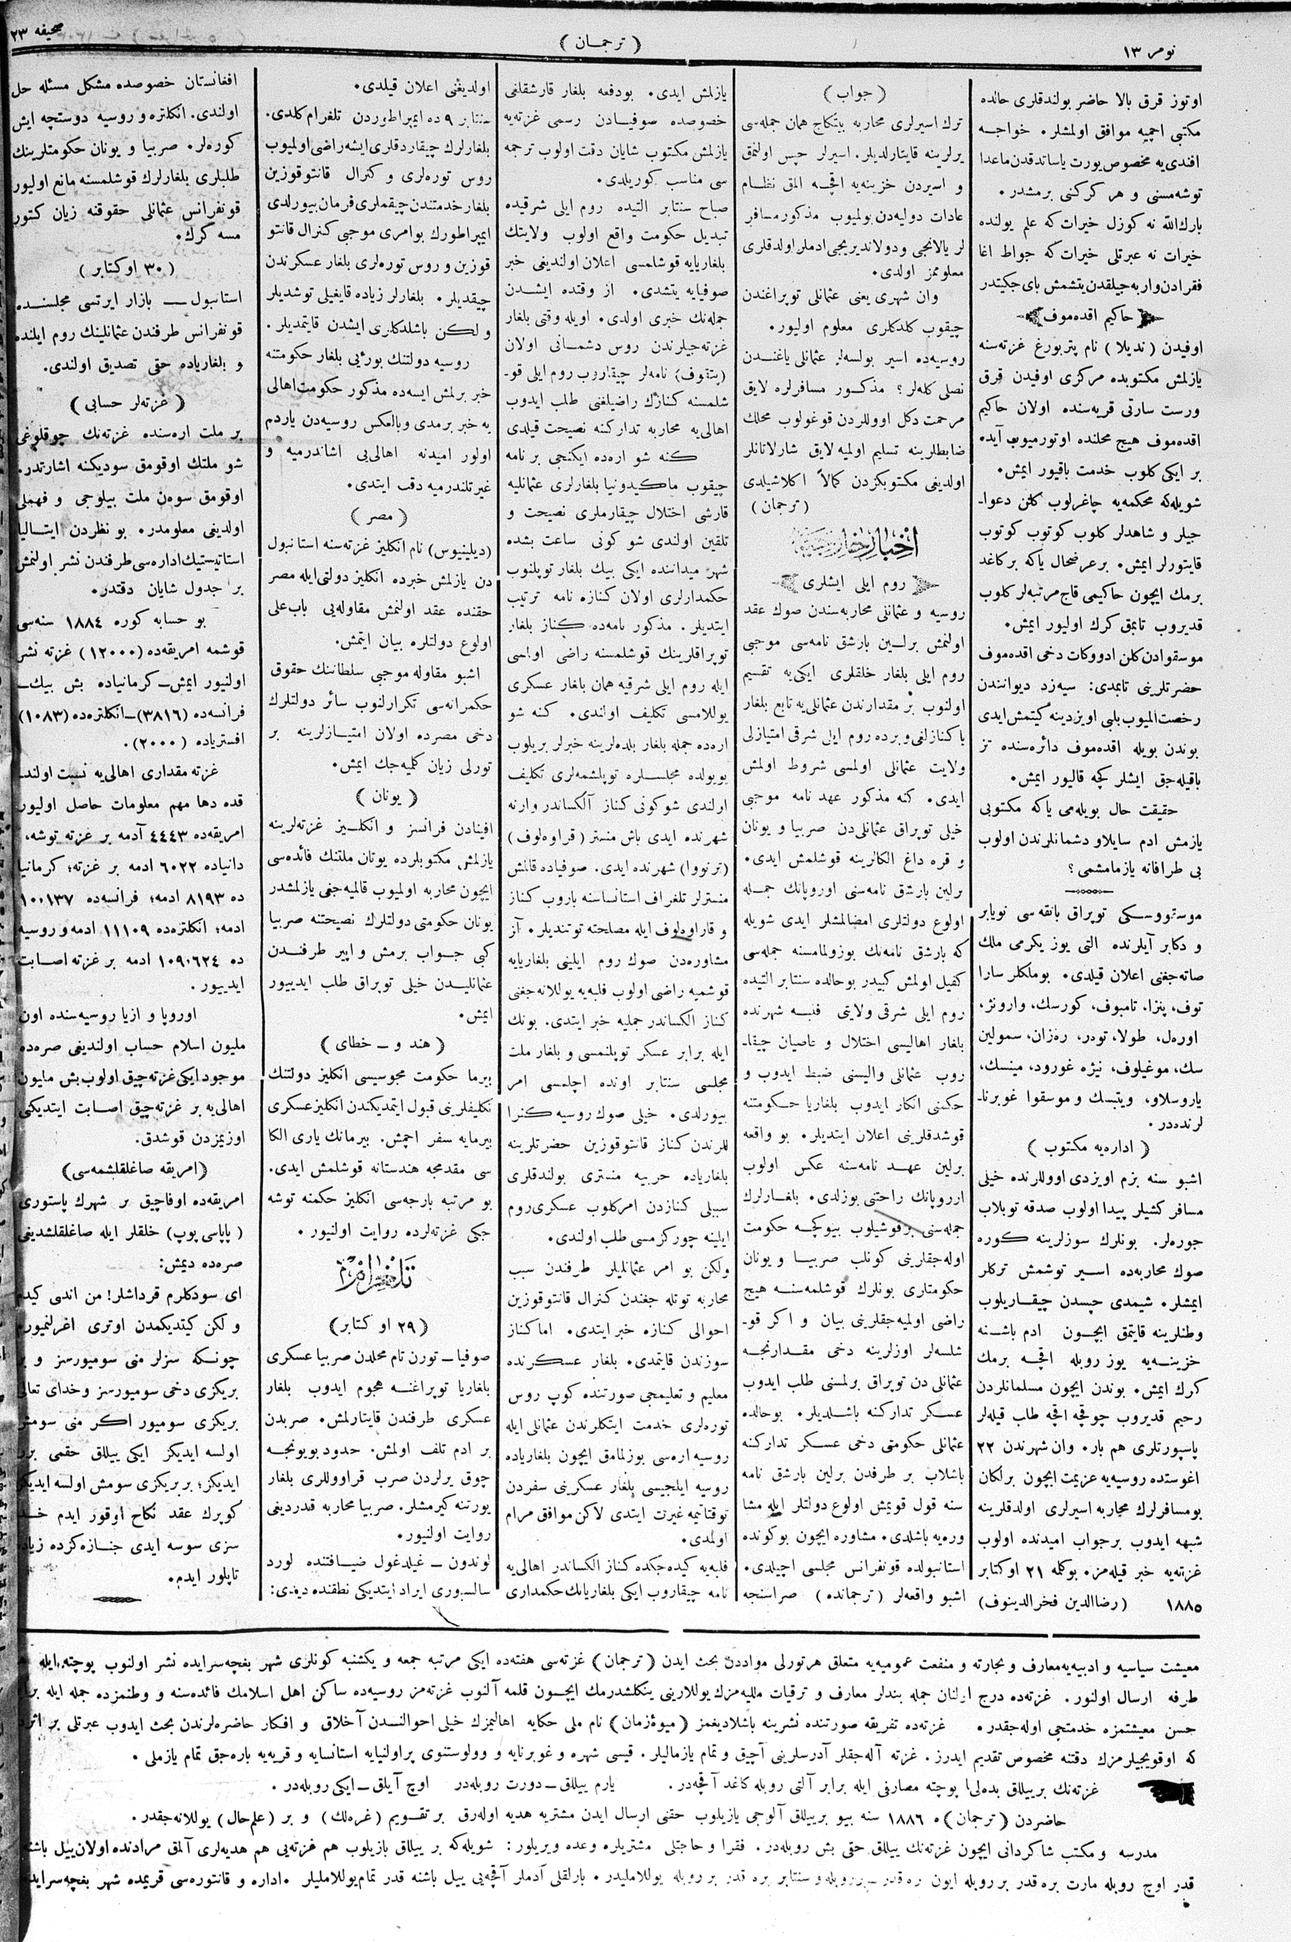 نومر ۱۳
( ترجمان )
صحیفه ۲۳
اوتوز قرق بالا حاضر بولندقاری حالده
مکتبی اجمیه موافق اولمشلر. خواجه
افندی‌یه مخصوص یورت یاساتدقدن ماعدا
توشه‌مسنی و هر کرکنی برمشدر.
بارك‌الله نه کوزل خیرات که علم یولنده
خیرات نه عبرتلی خیرات که جواط اغا
فقرادن واربه‌جیلقدن یتشمش بای جیکتدر
حاکیم اقده‌موف
اوفیدن (ندیلا) نام پتربورغ غزته‌سنه
یازلمش مکتوبده مرکزی اوفیدن قرق
ورست سارتی قریه‌سنده اولان حاکیم
اقده‌موف هیچ محلنده اوتورمیوب آیده
بر ایکی کلوب خدمت باقیور ایمش.
شویله‌که محکمه‌یه چاغرلوب کلن دعوا-
جیلر و شاهدلر کلوب کوتوب کوتوب
قایتورلر ایمش. برعرضحال یاکه برکاغد
برمك ایچون حاکیمی قاچ مرتبه‌لر کلوب
قدیروب تابمق کرك اولیور ایمش.
موسقوادن کلن ادووکات دخی اقده‌موف
حضرتلرینی تابمدی: سیه‌زد دیوانندن
رخصت‌المیوب بلبی اویزدینه کیتمش‌ایدی
بوندن بویله اقده‌موف دائره‌سنده تز
باقیله‌جق ایشلر کچه قالیور ایمش.
حقیقت حال بویله‌می یاکه مکتوبی
یازمش ادم سایلاو دشمانلرندن اولوب
بی طرفانه یازمامشمی؟
موستووسکی توپراق بانقه سی نویابر
و دکابر آیلرنده التی یوز یکرمی ملك
صاته‌جغنی اعلان قیلدی. بوملکلر سارا
توف، پنزا، تامبوف، کورسك، وارونژ،
اوره‌ل، طولا، تودر، ره‌زان، سمولین
سك، موغیلوف، نیژه غورود، مینسك،
یاروسلاو، ویتبسك و موسقوا غوبرنا-
لرنده‌در.
( اداره‌یه مکتوب )
اشبو سنه بزم اویزدی اووللرنده خیلی
مسافر کشیلر پیدا اولوب صدقه توبلاب
جوره‌لر. بونلرك سوزلرینه کوره
صوك محاربه‌ده اسیر توشمش ترکلر
ایمشلر. شیمدی حپسدن چیقاریلوب
وطنلرینه قایتمق ایچون ادم باشنه
خزینه‌یه یوز روبله اقچه برمك
کرك ایمش. بوندن ایچون مسلمانلردن
رحیم قدیروب چوقچه اقچه طلب قیله‌لر
پاسپورتلری هم بار. وان شهرندن ۲۲
اغوستده روسیه‌یه عزیمت ایچون برلکان
بومسافرلرك محاربه اسیرلری اولدقلرینه
شبهه ایدوب برجواب امیدنده اولوب
غزته‌یه خبر قیله‌مز. بوکله ۲۱ اوکتابر
۱۸۸۵ (رضاالدین فخرالدینوف)
( جواب )
ترك اسیرلری محاربه بیتکاج همان جمله‌سی
یرلرینه قایتارلدیلر. اسیرلر حپس اولنمق
و اسیردن خزینه‌یه اقچه المق نظام
عادات دولیه‌دن بولمیوب مذکور مسافر
لر یالانجی و دولاندیریجی ادملر اولدقلری
معلوممز اولدی.
وان شهری یعنی عثمانلی توپراغندن
چیقوب کلدکلری معلوم اولیور.
روسیه‌ده اسیر بولسه‌لر عثمانلی یاغندن
نصلی کله‌لر؟ مذکور مسافرلره لایق
مرحمت دکل اووللردن قوغولوب محلك
ضابطلرینه تسلیم اولمیه لایق شارلاتانلر
اولدیغی مکتوبکزدن کمالاً اکلاشیلدی
(ترجمان)
اخبار خارجیه
روم ایلی ایشلری
روسیه و عثمانلی محاربه‌سندن صوك عقد
اولنمش برلین بارشق نامه‌سی موجبی
روم ایلی بلغار خلقلری ایکی‌یه تقسیم
اولنوب بر مقدارندن عثمانلی‌یه تابع بلغار
یا کنازلغی وبرده روم ایلی شرقی امتیازلی
ولایت عثمانلی اولمسی شروط اولمش
ایدی. کنه مذکور عهد نامه موجبی
خیلی توپراق عثمانلی‌دن صربیا و یونان
و قره داغ الکالرینه قوشلمش ایدی.
برلین بارشق نامه‌سی اوروپانك جمله
اولوغ دولتلری امضالمشلر ایدی شویله
که بارشق نامه‌نك بوزولمامسنه جمله‌سی
کفیل اولمش کبیدر بوحالده سنتابر التیده
روم ایلی شرقی ولایتی فلبه شهرنده
بلغار اهالیسی اختلال و عاصیان چیقا-
روب عثمانلی والیسنی ضبط ایدوب و
حکمنی انکار ایدوب بلغاریا حکومتنه
قوشدقلرینی اعلان ایتدیلر. بو واقعه
برلین عهد نامه‌سنه عکس اولوب
اوروپانك راحتنی بوزلدی. بلغارلرك
جمله‌سنی برقوشیلوب بیوکچه حکومت
اوله‌جقلرینی کونلب صربیا و یونان
حکومتلری بونلرك قوشلمه‌سنه هیچ
راضی اولمیه جقلرینی بیان و اکر قو-
شلسه‌لر اوزلرینه دخی مقدارنجه
عثمانلی دن توپراق برلمسنی طلب ایدوب
عسکر تدارکنه باشلدیلر. بوحالده
عثمانلی حکومتی دخی عسکر تدارکنه
باشلاب بر طرفدن برلین بارشق نامه
سنه قول قویمش اولوغ دولتلر ایله مشا
وره‌یه باشلدی. مشاوره ایچون بوکونده
استانبولده قونفرانس مجلسی اچیلدی.
اشبو واقعه‌لر (ترجمانده) صراسنجه
یازلمش ایدی. بودفعه بلغار قارشقلغی
خصوصده صوفیادن رسمی غزته‌یه
یازلمش مکتوب شایان دقت اولوب ترجمه
سی مناسب کوریلدی.
صباح سنتابر التیده روم ایلی شرقیده
تبدیل حکومت واقع اولوب ولایتك
بلغاریایه قوشلمسی اعلان اولندیغی خبر
صوفیایه یتشدی. از وقتده ایشدن
جمله‌نك خبری اولدی. اویله وقتی بلغار
غزته‌جیلرندن روس دشمانی اولان
(پتقوف) نامه‌لر چیقاروب روم ایلی قو-
شلمسنه کنازك راضیلغنی طلب ایدوب
اهالی‌یه محاربه تدارکنه نصیحت قیلدی
کنه شو اره‌ده ایکنجی بر نامه
چیقوب ماکیدونیا بلغارلری عثمانلیه
قارشی اختلال چیقارملری نصیحت و
تلقین اولندی شو کونی ساعت بشده
شهر میداننده ایکی بیك بلغار توپلنوب
حکمدارلری اولان کنازه نامه ترتیب
ایتدیلر. مذکور نامه‌ده کناز بلغار
توپراقلرینك قوشلمسنه راضی اولمسی
ایله روم ایلی شرقیه همان بلغار عسکری
یوللامسی تکلیف اولندی. کنه شو
اره‌ده جمله بلغار بلده‌لرینه خبرلر بریلوب
بویولده مجلسلره توپلشمه‌لری تکلیف
اولندی شوکونی کناز آلکساندر وارنه
شهرنده ایدی باش منستر (قراوه‌لوف)
(ترنووا) شهرنده ایدی. صوفیاده قالمش
منسترلر تلغراف استانساسنه باروب کناز
و قاراوه‌لوف ایله مصلحته توتندیلر. آز
مشاوره‌دن صوك روم ایلینی بلغاریایه
قوشمیه راضی اولوب فلبه‌یه یوللانه‌جغنی
کناز الکساندر جمله‌یه خبر ایتدی. بونك
ایله برابر عسکر توپلنمسی و بلغار ملت
مجلسی سنتابر اونده اچلمسی امر
بیورلدی. خیلی صوك روسیه کنرا
للرندن کناز قانتوقوزین حضرتلرینه
بلغاریاده حربیه منستری بولندقلری
سببلی کنازدن امرکلوب عسکری روم
ایلینه چورکزمسی طلب اولندی.
ولکن بو امر عثمانلیلر طرفندن سبب
محاربه توتله جغندن کنرال قانتوقوزین
احوالی کنازه خبر ایتدی. اماکناز
سوزندن قایتمدی. بلغار عسکرنده
معلیم و تعلیمجی صورتنده کوپ روس
توره‌لری خدمت ایتکلرندن عثمانلی ایله
روسیه اره‌سی بوزلمامق ایچون بلغاریاده
روسیه ایلچیسی بلغار عسکرینی سفردن
توقتاتمیه غیرت ایتدی لاکن موافق مرام
اولمدی.
فلبه‌یه کیده‌جکده کناز الکساندر اهالی‌یه
نامه چیقاروب ایکی بلغاریانك حکمداری
اولدیغنی اعلان قیلدی.
سنتابر ۹ ده ایمپراطوردن تلغرام کلدی.
بلغارلرك چیقاردقلری ایشه راضی اولمیوب
روس توره‌لری و کنرال قانتوقوزین
بلغار خدمتندن چیقملری فرمان بیورلدی
ایمپراطورك بوامری موجبی کنرال قانتو
قوزین و روس توره‌لری بلغار عسکرندن
چیقدیلر. بلغارلر زیاده قایغیلی توشدیلر
و لکن باشلدکلری ایشدن قایتمدیلر.
روسیه دولتنك بورئی بلغار حکومتنه
خبر برلمش ایسه‌ده مذکور حکومت اهالی
یه خبر برمدی وبالعکس روسیه‌دن یاردم
اولور امیدنه اهالی‌یی اشاندرمیه و
غیرتلندرمیه دقت ایتدی.
( مصر )
(دیلینیوس) نام انکلیز غزته‌سنه استانبول
دن یازلمش خبرده انکلیز دولتی ایله مصر
حقنده عقد اولنمش مقاوله‌یی باب‌علی
اولوغ دولتلره بیان ایتمش.
اشبو مقاوله موجبی سلطاننك حقوق
حکمرانه‌سی تکرارلنوب سائر دولتلرك
دخی مصرده اولان امتیازلرینه بر
تورلی زیان کلمیه‌جك ایمش.
( یونان )
افینادن فرانسز و انکلیز غزته‌لرینه
یازلمش مکتوبلرده یونان ملتنك فائده‌سی
ایچون محاربه اولمیوب قالمیه‌جغی یازلمشدر
یونان حکومتی دولتلرك نصیحتنه صربیا
کبی جواب برمش و ایپر طرفندن
عثمانلیدن خیلی توپراق طلب ایدییور
ایمش.
( هند و ـ خطای )
بیرما حکومت مجوسیسی انکلیز دولتنك
تکلیفلرینی قبول ایتمدیکندن انکلیز عسکری
بیرمایه سفر اچمش. بیرمانك یاری الکا
سی مقدمجه هندستانه قوشلمش ایدی.
بو مرتبه بارجه‌سی انکلیز حکمنه توشه
جکی غزته‌لرده روایت اولنیور.
تلغرام
(۲۹ اوکتابر)
صوفیا ـ تورن نام محلدن صربیا عسکری
بلغاریا توپراغنه هجوم ایدوب بلغار
عسکری طرفندن قایتارلمش. صربدن
بر ادم تلف اولمش. حدود بویونجه
چوق یرلردن صرب قراووللری بلغار
یورتنه کیرمشلر. صربیا محاربه قدردیغی
روایت اولنیور.
لوندون ـ غیلدغول ضیافتنده لورد
سالسبوری ایراد ایتدیکی نطقنده دیدی:
افغانستان خصوصده مشکل مسئله حل
اولندی. انکلتره و روسیه دوستچه ایش
کوره‌لر. صربیا و یونان حکومتلرینك
طلبلری بلغارلرك قوشلمسنه مانع اولیور
قونفرانس عثمانلی حقوقنه زیان کتور
مسه کرك.
( ۳۰ اوکتابر )
استانبول ـ بازار ایرتسی مجلسنده
قونفرانس طرفندن عثمانلینك روم ایلنده
و بلغاریاده حقی تصدیق اولندی.
( غزته‌لر حسابی )
بر ملت اره‌سنده غزته‌نك چوقلوغی
شو ملتك اوقومق سودیکنه اشارتدر.
اوقومق سوه‌ن ملت بیلوجی و فهملی
اولدیغی معلومدره بو نظردن ایتالیا
استاتیستیك اداره‌سی طرفندن نشر اولنمش
بر جدول شایان دقتدر.
بو حسابه کوره ۱۸۸٤ سنه‌سی
قوشمه امریقه‌ده (۱۲۰۰۰) غزته نشر
اولنیور ایمش ـ کرمانیاده بش بیك ـ
فرانسه‌ده (۳۸۱٦) ـ انکلتره‌ده (۱۰۸۳)
افستریاده (۲۰۰۰).
غزته مقداری اهالی‌یه نسبت اولند-
قده دها مهم معلومات حاصل اولیور
امریقه‌ده ٤٤٤۳ آدمه بر غزته توشه،
دانیاده ٦۰۲۲ ادمه بر غزته؛ کرمانیا
ده ۸۱۹۳ ادمه؛ فرانسه‌ده ۱۰۰۱۳۷
ادمه؛ انکلتره‌ده ۱۱۱۰۹ ادمه و روسیه
ده ۱۰۹۰٦۲٤ ادمه بر غزته اصابت
ایدییور.
اوروپا و ازیا روسیه‌سنده اون
ملیون اسلام حساب اولندیغی صره‌ده
موجود ایکی غزته‌جیق اولوب بش ملیون
اهالی‌یه بر غزته‌چق اصابت ایتدیکی
اوزیمزدن قوشدق.
(امریقه صاغلقلشمه‌سی)
امریقه‌ده اوفاچیق بر شهرك پاستوری
(پاپاسی پوپ) خلقلر ایله صاغلقلشدیغی
صره‌ده دیمش:
ای سودکلرم قرداشلر! من اندی کیدم
و لکن کیتدیکمدن اوتری اغرلنمیورم
چونکه سزلر منی سومیورسز و بر
بریکزی دخی سومیورسز وخدای تعالی
بریکزی سومیور اکر منی سومش
اولسه ایدیکز ایکی ییللق حقمی برر
ایدیکز؛ بربریکزی سومش اولسه ایدیکز
کوپرك عقد نکاح اوقور ایدم
سزی سوسه ایدی جنازه‌کزده زیاده
تاپلور ایدم.
معیشت سیاسیه و ادبیه‌یه معارف و تجارته و منفعت عمومیه‌یه متعلق هرتورلی مواددن بحث ایدن (ترجمان) غزته‌سی هفته‌ده ایکی مرتبه جمعه و یکشنبه کونلری شهر بغچه‌سرایده نشر اولنوب پوچته ایله
طرفه ارسال اولنور. غزته‌ده درج اولنان جمله بندلر معارف و ترقیات ملیه‌مزك یوللارینی ینکلشدرمك ایچون قلمه آلنوب غزته‌مز روسیه‌ده ساکن اهل اسلامك فائده‌سنه و وطنمزده جمله ایله برابر
حسن معیشتمزه خدمتجی اوله‌جقدر. غزته‌ده تفریقه صورتنده نشرینه باشلادیغمز (میوۀ‌زمان) نام ملی حکایه اهالیمزك خیلی احوالندن آخلاق و افکار حاضره‌لرندن بحث ایدوب عبرتلی بر اثردر
که اوقویجیلرمزك دقتنه مخصوص تقدیم ایدرز. غزته آله‌جقلر آدرسلرینی آچیق و تمام یازمالیلر. قیسی شهره و غوبرنایه و وولوستنوی پراولنیایه استانسایه و قریه‌یه باره‌جق تمام یازملی.
غزته‌نك برییللق بده‌لی پوچته مصارفی ایله برابر آلتی روبله کاغد آقچه‌در. یارم ییللق ـ دورت روبله‌در اوچ آیلق ـ ایکی روبله‌در.
حاضردن (ترجمان)ه ۱۸۸٦ سنه بیو برییللق آلوجی یازیلوب حقنی ارسال ایدن مشتریه هدیه اوله‌رق برتقویم (غره‌لك) و بر (علم‌حال) یوللانه‌جقدر.
مدرسه و مکتب شاکردانی ایچون غزته‌نك ییللق حقی بش روبله‌در. فقرا و حاجتلی مشتریلره وعده ویریلور: شویله‌که بر ییللاق یازیلوب هم غزته‌یی هم هدیه‌لری آلمق مرادنده اولان ییل باشنه
قدر اوچ روبله مارت بره قدر بر روبله ایون بره قدر بر روبله و سنتابر بره قدر بر روبله یوللاملیدر. بارلقلی آدملر آقچه‌یی ییل باشنه قدر تمام یوللاملیلر. اداره و قانتوره‌سی قریمده شهر بغچه‌سرایده